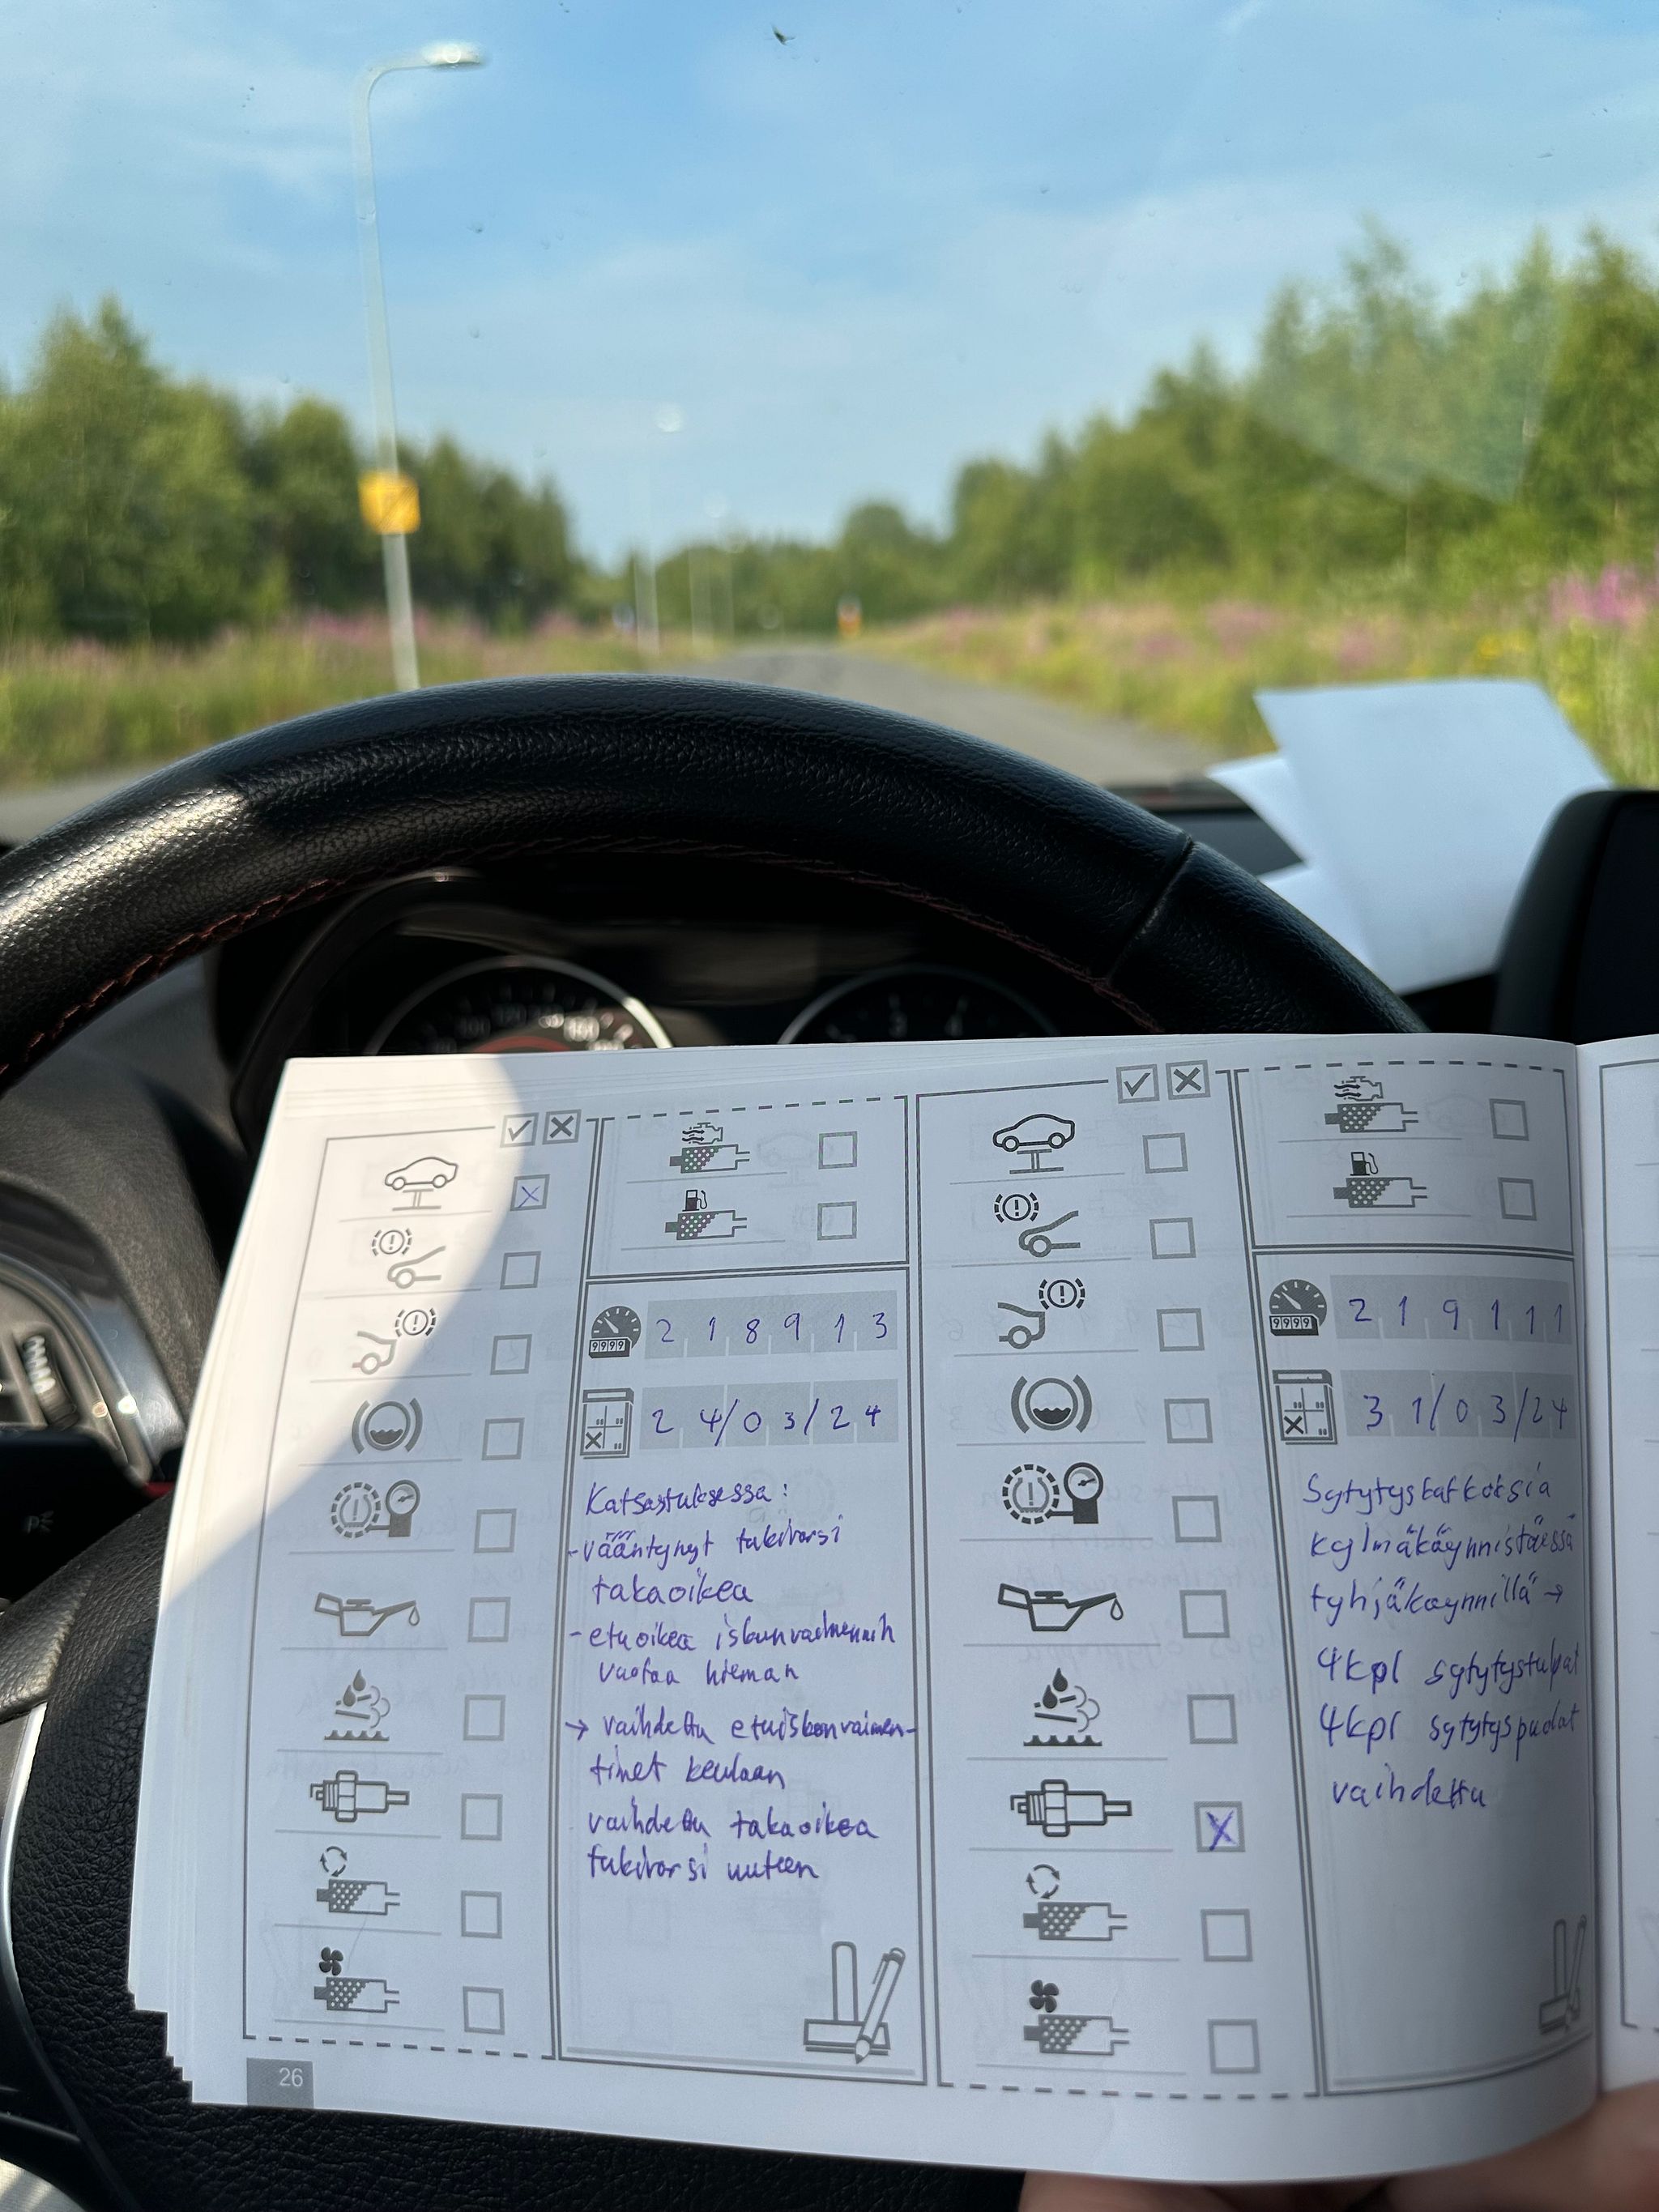 2 1 8 9 1 3
2 4/0 3/2 4
Katsastuksessa:
-vääntynyt tukivarsi
takaoikea
-etuoikea iskunvaimennin
vuotaa hieman
→ vaihdettu etuiskunvaimen-
timet keulaan
vaihdettu takaoikea
tukivarsi uuteen
26
2 1 9 1 1 1
3 1/0 3/24
Sytytyskatkoksia
kylmäkäynnistäessä
tyhjäkäynnillä →
4kpl sytytystulpat
4kpl sytytyspuolat
vaihdettu